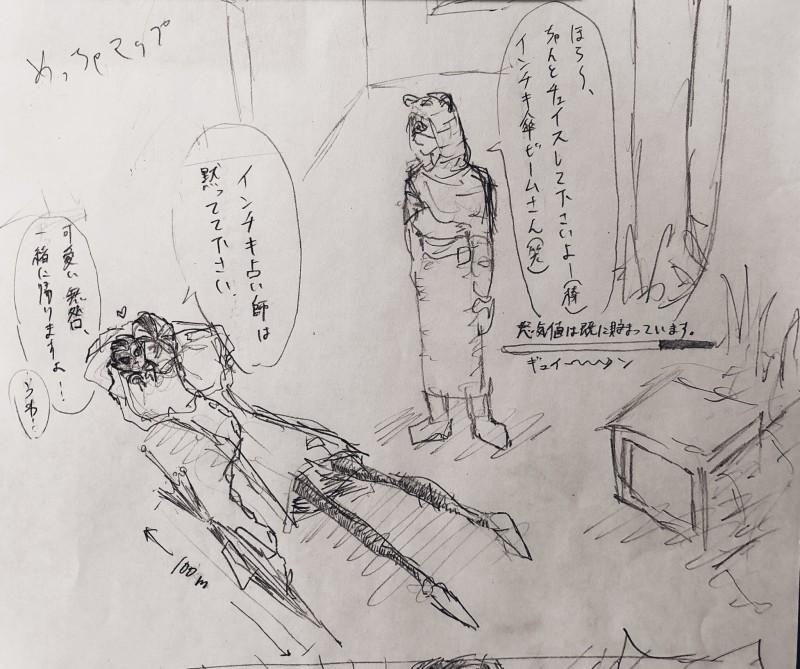 めっちゃマップ
ほら〜、
ちゃんとチェイスして下さいよー(棒)
インチキ傘ビームさん(笑)
インチキ占い師は
黙ってて下さい.
怒気値は既に貯まっています。
ギュイ〜〜ン
可愛い無咎、
一緒に帰りますよ！！
うわ！
100m